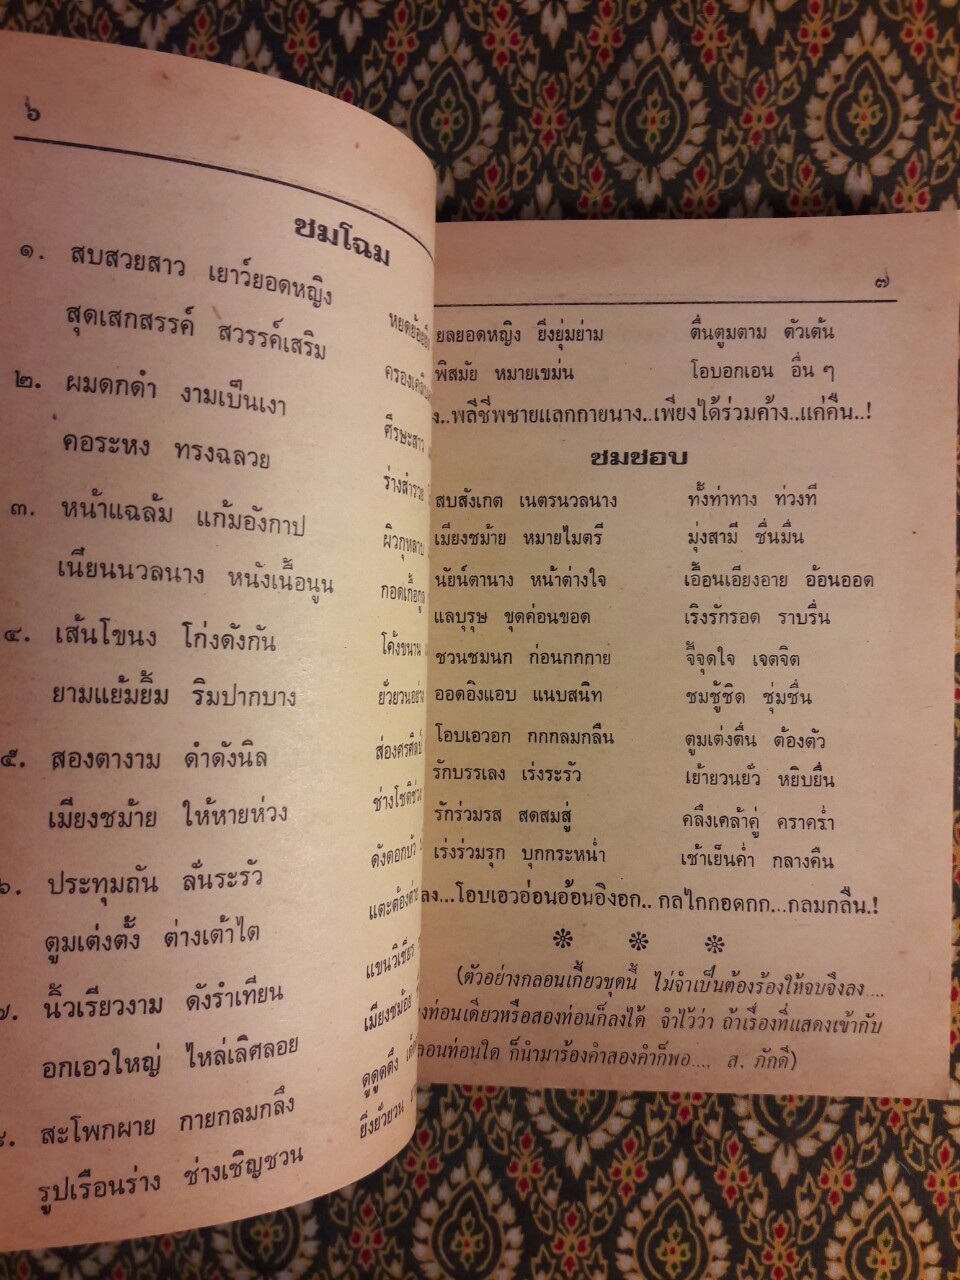 ๖
ชมโฉม
๑. สบสวยสาว เยาว์ยอดหญิง
สุดเสกสรรค์ สวรรค์เสริม
๒. ผมดกดำ งามเป็นเงา
คอระหง ทรงฉลวย
๓. หน้าแฉล้ม แก้มอังกาป
เนียนนวลนาง หนังเนื้อนูน
๔. เส้นโขนง โก่งดังกัน
ยามแย้มยิ้ม ริมปากบาง
๕. สองตางาม ดำดังนิล
เมียงชม้าย ให้หายห่วง
๖. ประทุมถัน ลั่นระรัว
ตูมเต่งตั้ง ต่างเต้าไต
๗. นิ้วเรียวงาม ดังรำเทียน
อกเอวใหญ่ ไหล่เลิศลอย
สะโพกผาย กายกลมกลึง
รูปเรือนร่าง ช่างเชิญชวน
ศีรษะสาว
ร่างสำรวย
ผิวกุหลาบ
กอดเกื้อกูล
โค้งขนาน
ยั่วยวนอย่าง
ส่องศรศิลป์
ช่างโชติช่วง
ดังดอกบัว
แตะต้องต่าย
แขนวิเชียร
เมียงชม้อย
ดูดูดดึง
ยิ่งยั่วยวน
๗
ยลยอดหญิง ยิ่งยุ่มย่าม ตื่นตูมตาม ตัวเต้น
พิสมัย หมายเขม่น โอบอกเอน อื่น ๆ
..พลีชีพชายแลกกายนาง..เพียงได้ร่วมค้าง..แค่คืน..!
ชมชอบ
สบสังเกต เนตรนวลนาง ทั้งท่าทาง ท่วงที
เมียงชม้าย หมายไมตรี มุ่งสามี ชื่นมื่น
นัยน์ตานาง หน้าต่างใจ เอื้อนเอียงอาย อ้อนออด
แลบุรุษ ขุดค่อนขอด เริงรักรอด ราบรื่น
ชวนชมนก ก่อนกกกาย จี้จุดใจ เจตจิต
ออดอิงแอบ แนบสนิท ชมชู้ชิด ชุ่มชื่น
โอบเอวอก กกกลมกลืน ตูมเต่งตื่น ต้องตัว
รักบรรเลง เร่งระรัว เย้ายวนยั่ว หยิบยื่น
รักร่วมรส สดสมสู่ คลึงเคล้าคู่ คราคร่ำ
เร่งร่วมรุก บุกกระหน่ำ เช้าเย็นค่ำ กลางคืน
ลง...โอบเอวอ่อนอ้อนอิงอก..กลไกกอดกก...กลมกลืน.!
(ตัวอย่างกลอนเกี้ยวชุดนี้ ไม่จำเป็นต้องร้องให้จบจึงลง....
ท่อนเดียวหรือสองท่อนก็ลงได้ จำไว้ว่า ถ้าเรื่องที่แสดงเข้ากับ
ลอนท่อนใด ก็นำมาร้องคำสองคำก็พอ.... ส. ภักดี)